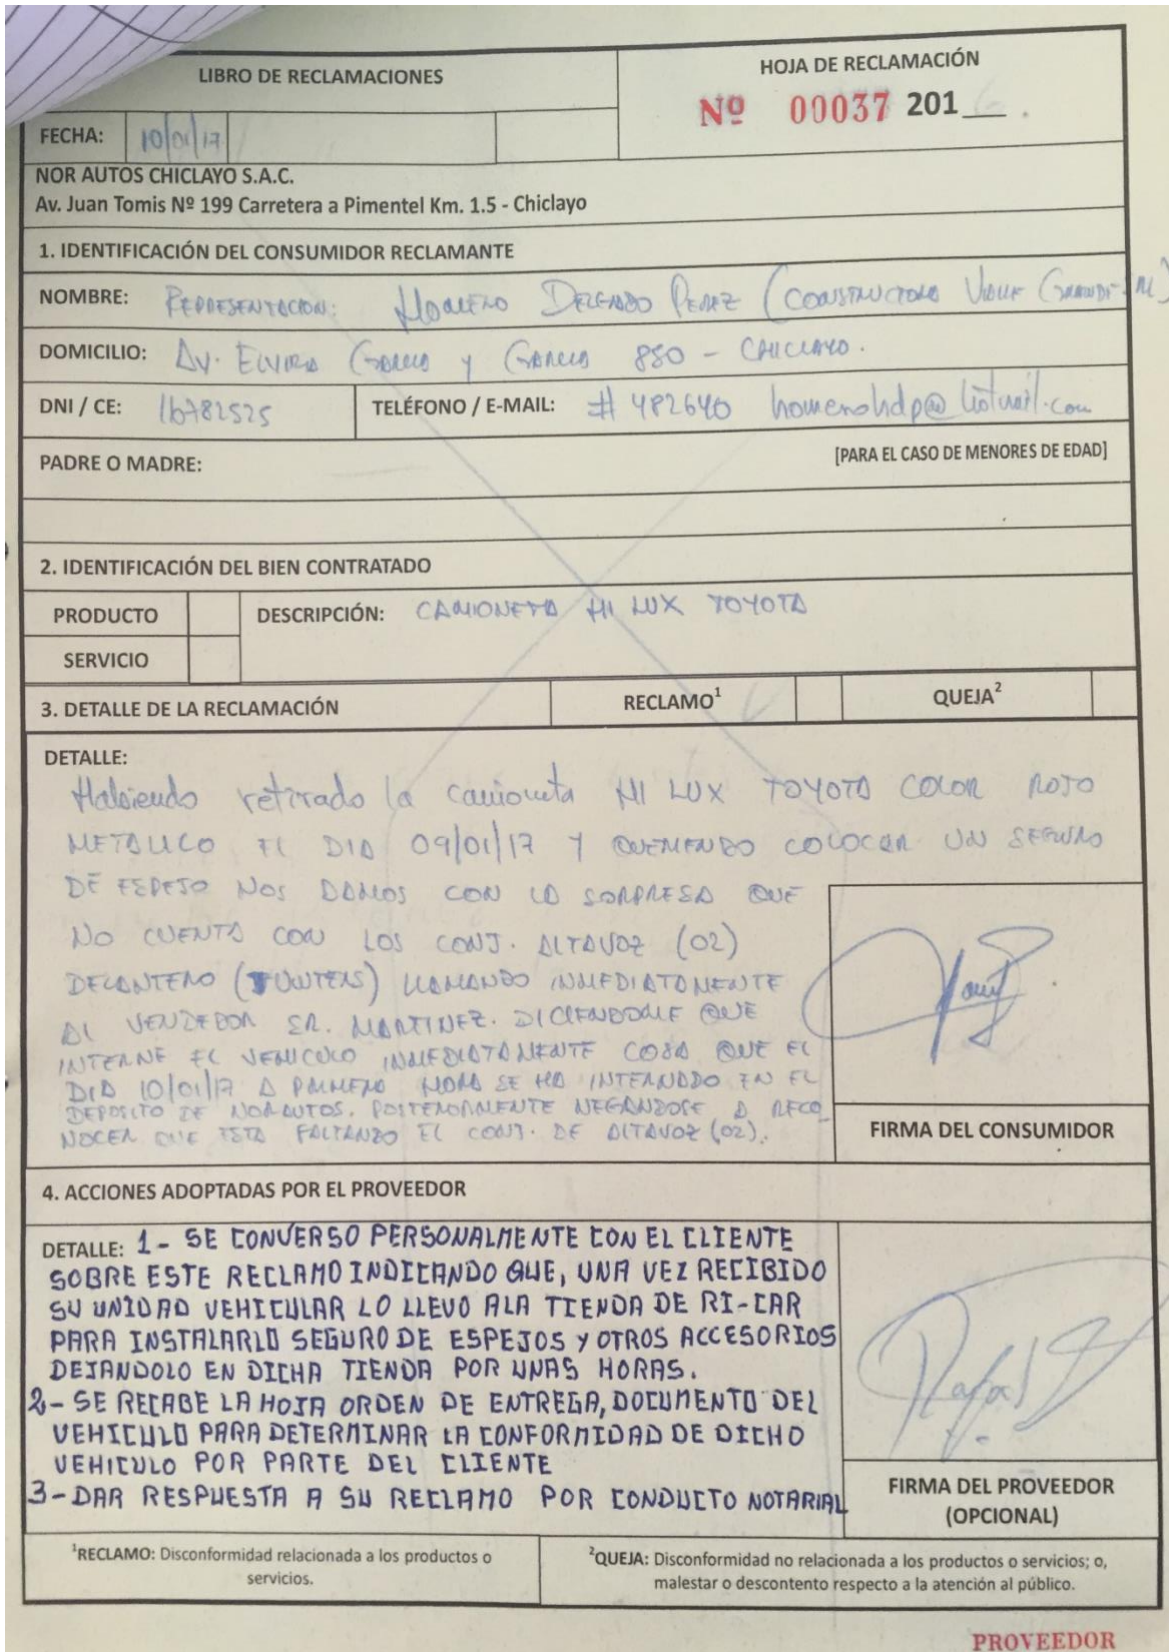 LIBRO DE RECLAMACIONES
HOJA DE RECLAMACIÓN
Nº 00037 201__.
FECHA: 10/01/17
NOR AUTOS CHICLAYO S.A.C.
Av. Juan Tomis Nº 199 Carretera a Pimentel Km. 1.5 - Chiclayo
1. IDENTIFICACIÓN DEL CONSUMIDOR RECLAMANTE
NOMBRE: REPRESENTACION: HOMERO DELGADO PEREZ (CONSTRUCTORA VALLE GRANDE
DOMICILIO: AV. ELVIRA GARCIA Y GARCIA 850 - CHICLAYO.
DNI / CE: 16782525 TELÉFONO / E-MAIL: # 482640 homerohdp@hotmail.com
PADRE O MADRE: [PARA EL CASO DE MENORES DE EDAD]
2. IDENTIFICACIÓN DEL BIEN CONTRATADO
PRODUCTO
DESCRIPCIÓN: CAMIONETA HI LUX TOYOTA
SERVICIO
3. DETALLE DE LA RECLAMACIÓN RECLAMO¹ QUEJA²
DETALLE:
Habiendo retirado la camioneta HI LUX TOYOTA COLOR ROJO
METALICO EL DIA 09/01/17 Y QUERIENDO COLOCAR UN SEGURO
DE ESPEJO NOS DAMOS CON LA SORPRESA QUE
NO CUENTA CON LOS CONJ. ALTAVOZ (02)
DELANTERO (TUWTERS) LLAMANDO INMEDIATAMENTE
AL VENDEDOR SR. MARTINEZ. DICIENDOME QUE
INTERNE EL VEHICULO INMEDIATAMENTE COSA QUE EL
DIA 10/01/17 A PRIMERA HORA SE HA INTERNADO EN EL
DEPOSITO DE NORAUTOS. POSTERIORMENTE NEGANDOSE A RECO
NOCER QUE ESTA FALTANDO EL CONJ. DE ALTAVOZ (02).
FIRMA DEL CONSUMIDOR
4. ACCIONES ADOPTADAS POR EL PROVEEDOR
DETALLE: 1- SE CONVERSO PERSONALMENTE CON EL CLIENTE
SOBRE ESTE RECLAMO INDICANDO QUE, UNA VEZ RECIBIDO
SU UNIDAD VEHICULAR LO LLEVO ALA TIENDA DE RI-CAR
PARA INSTALARLO SEGURO DE ESPEJOS Y OTROS ACCESORIOS
DEJANDOLO EN DICHA TIENDA POR UNAS HORAS.
2- SE RECABE LA HOJA ORDEN DE ENTREGA, DOCUMENTO DEL
VEHICULO PARA DETERMINAR LA CONFORMIDAD DE DICHO
VEHICULO POR PARTE DEL CLIENTE
3- DAR RESPUESTA A SU RECLAMO POR CONDUCTO NOTARIAL
FIRMA DEL PROVEEDOR
(OPCIONAL)
¹RECLAMO: Disconformidad relacionada a los productos o
servicios.
²QUEJA: Disconformidad no relacionada a los productos o servicios; o,
malestar o descontento respecto a la atención al público.
PROVEEDOR